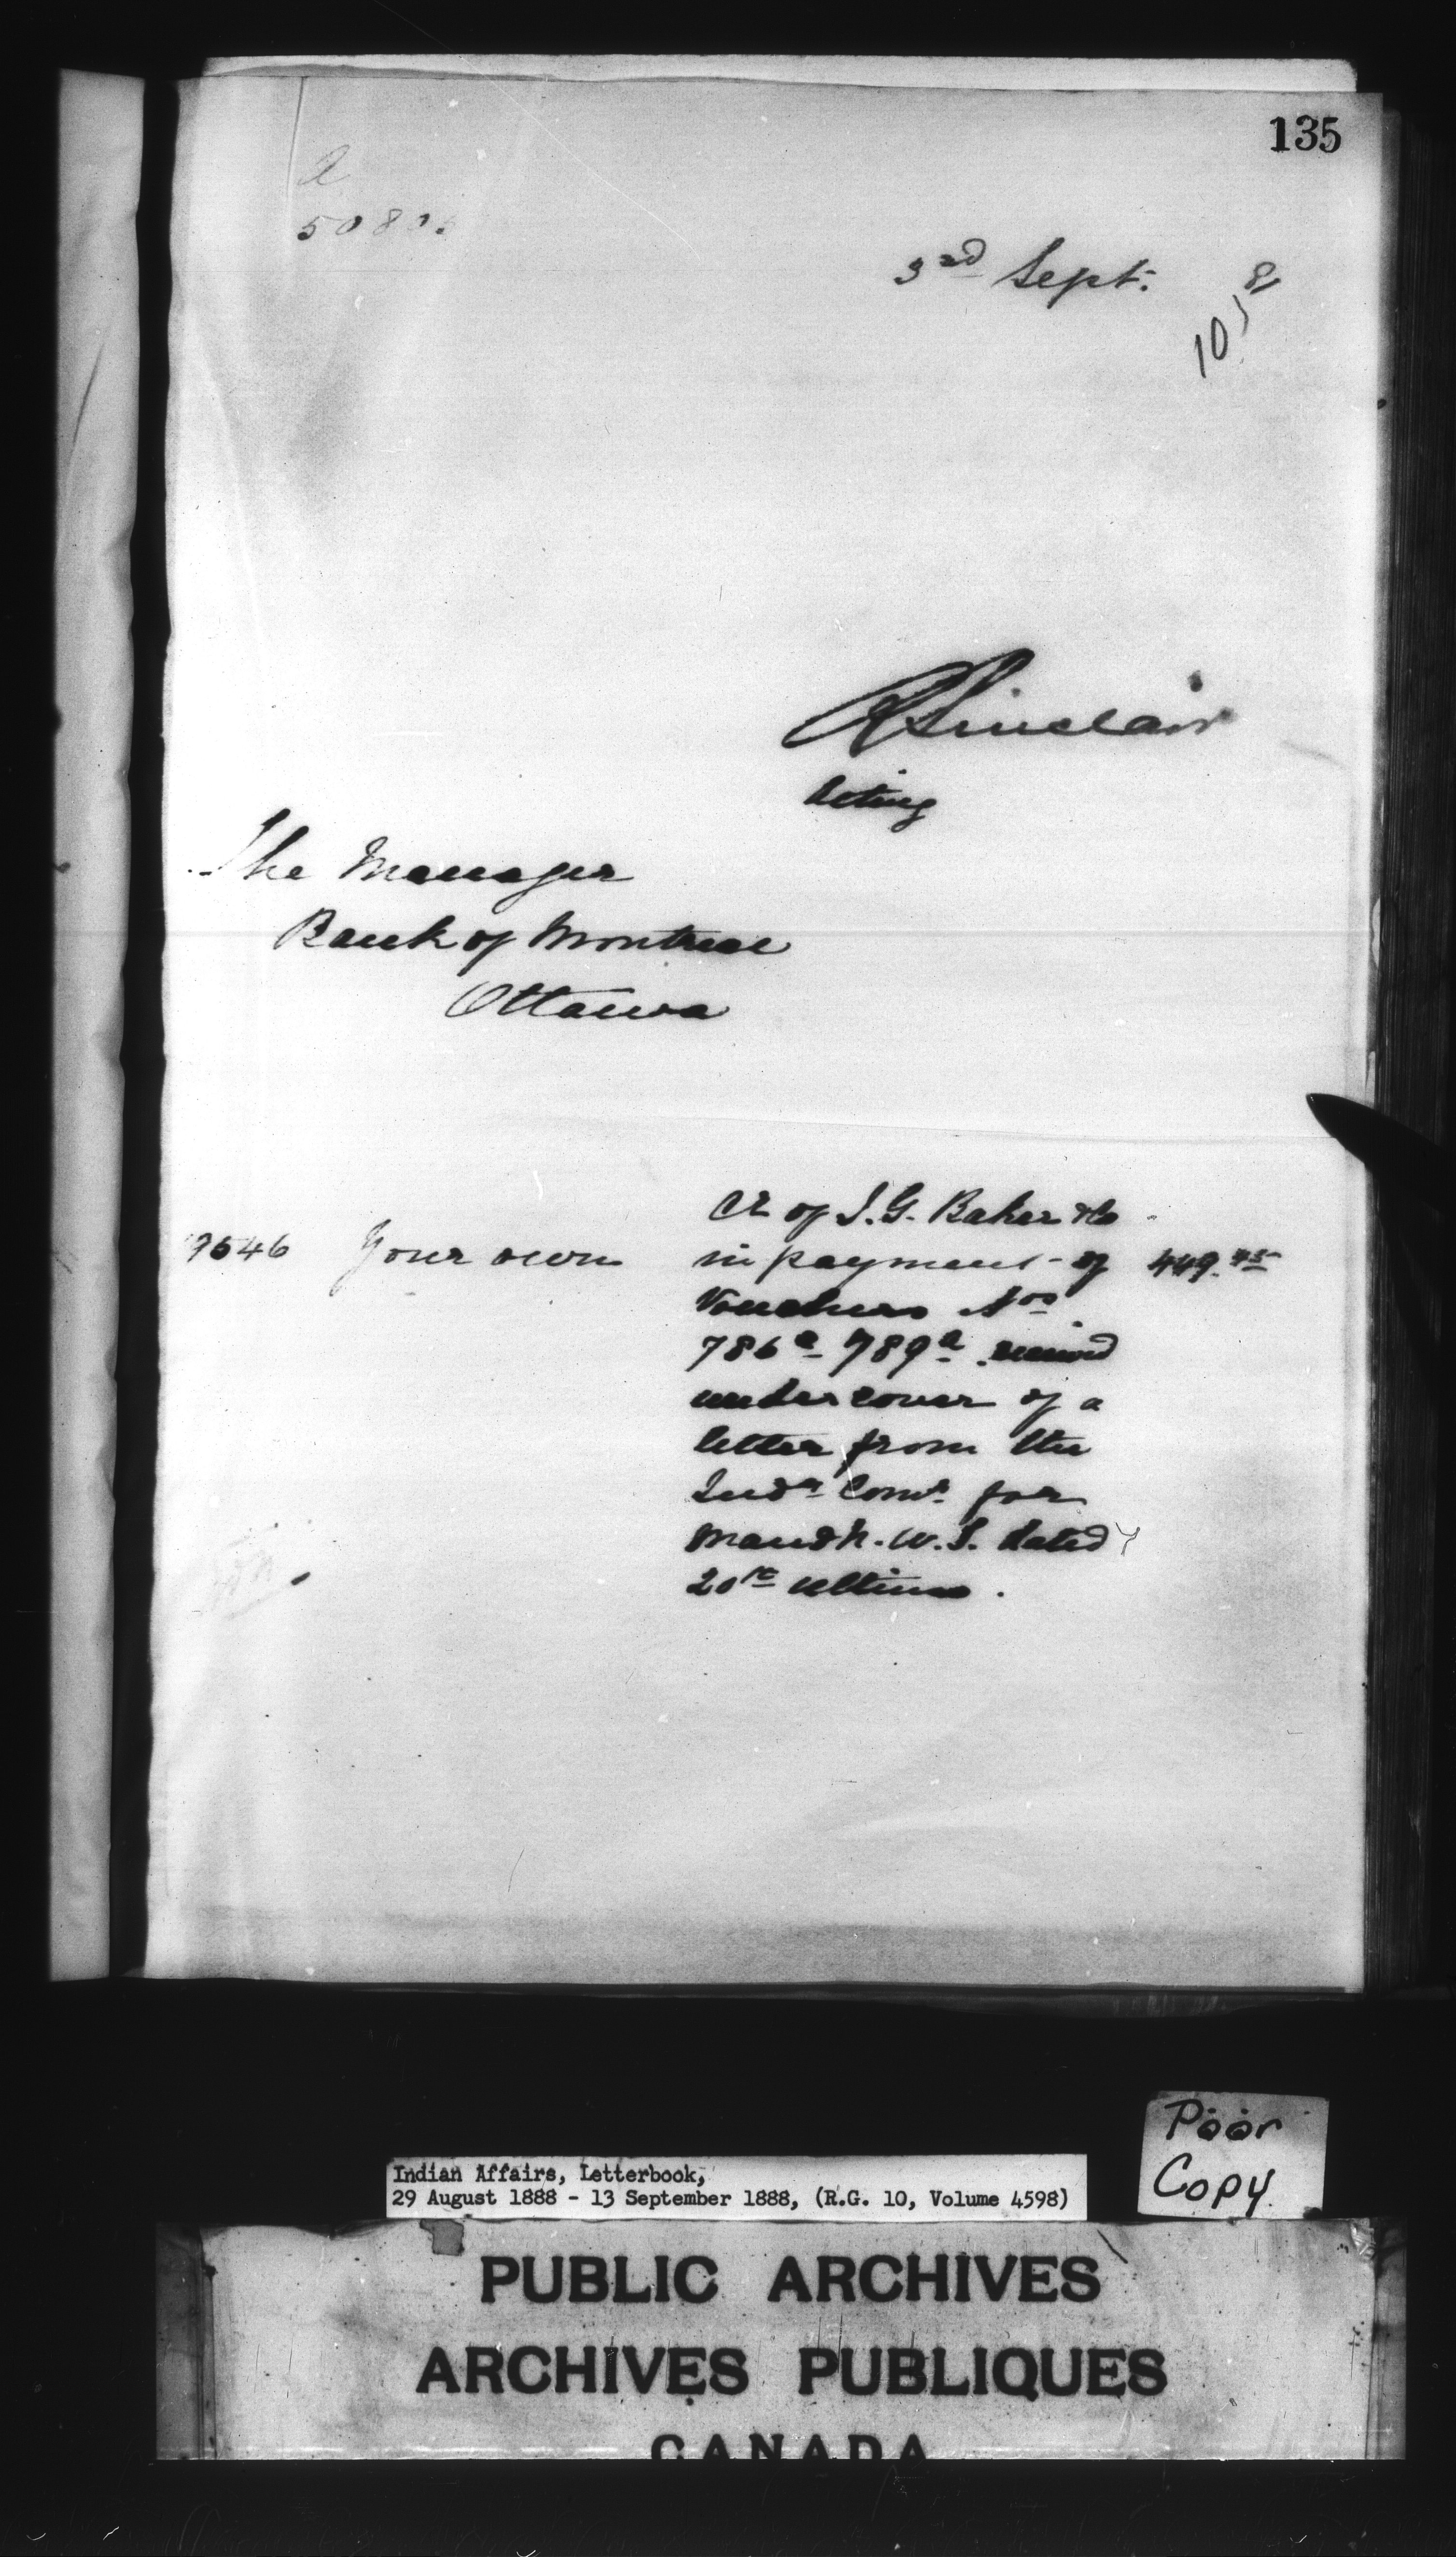 135
50805
3rd Sept.
R Sinclair
Acting
The Manager
Bank of Montreal
Ottawa
Cr of I. G. Baker & Co
9546 Your own in payment of 449.45
Vouchers Nos
786a - 789a received
under cover of a
letter from the
Indn Comr for
Man & N. W. T. dated
20th ultimo.
Poor
Copy
Indian Affairs, Letterbook,
29 August 1888 - 13 September 1888, (R.G. 10, Volume 4598)
PUBLIC ARCHIVES
ARCHIVES PUBLIQUES
CANADA